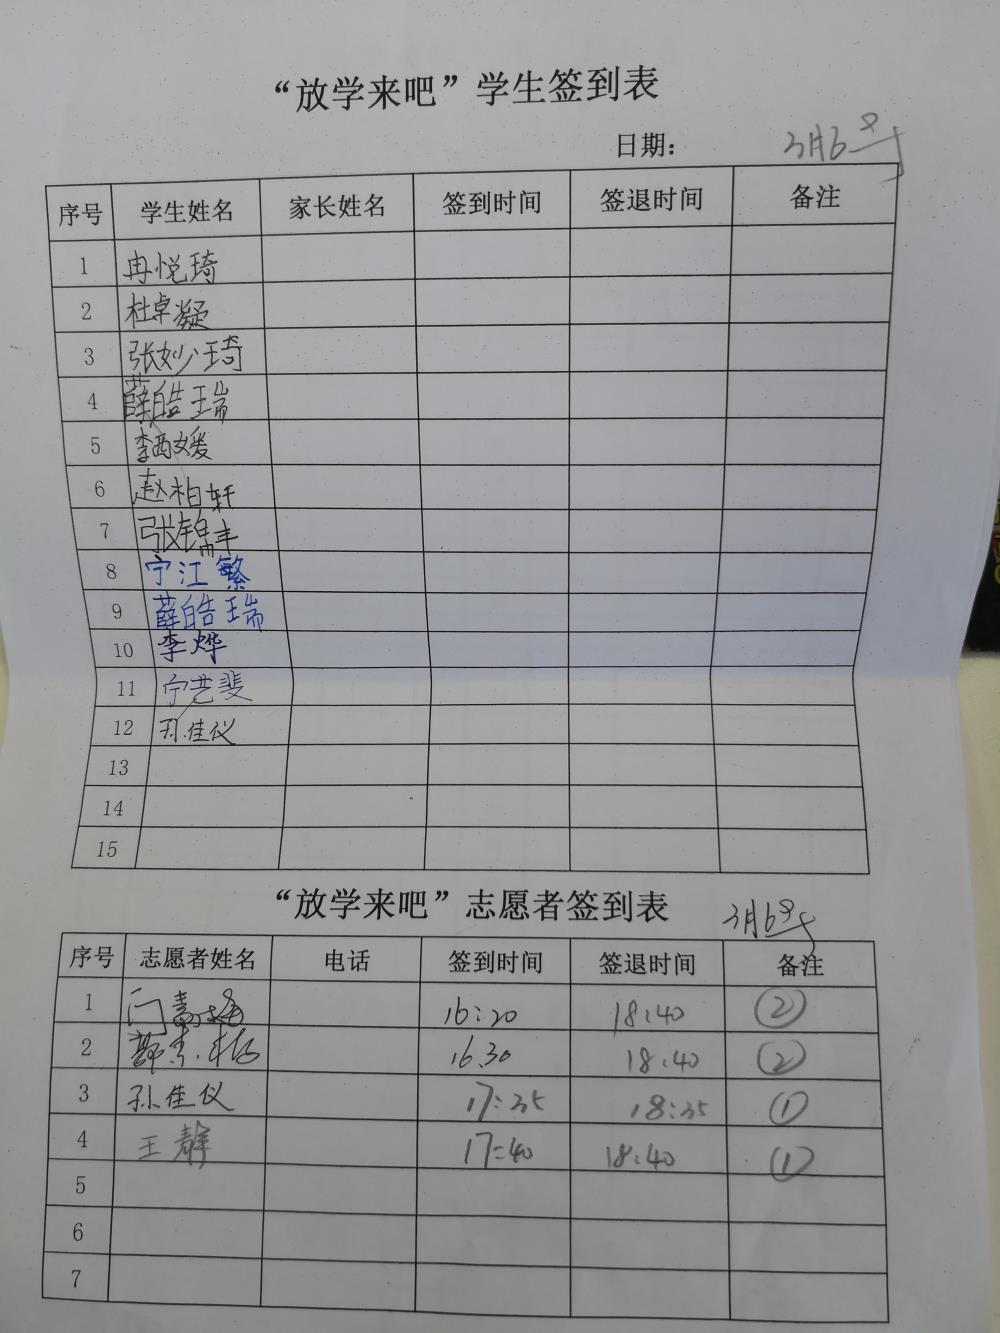 “放学来吧”学生签到表
日期： 3月6号
序号 学生姓名 家长姓名 签到时间 签退时间 备注
1 冉悦琦
2 杜卓凝
3 张妙琦
4 薛皓瑞
5 李西媛
6 赵柏轩
7 张锦丰
8 宁江繁
9 薛皓瑞
10 李烨
11 宁艺斐
12 孙佳仪
13
14
15
“放学来吧”志愿者签到表 3月6号
序号 志愿者姓名 电话 签到时间 签退时间 备注
1 16:20 18:40 ②
2 16:30 18:40 ②
3 孙佳仪 17:35 18:35 ①
4 王静 17:40 18:40 ①
5
6
7